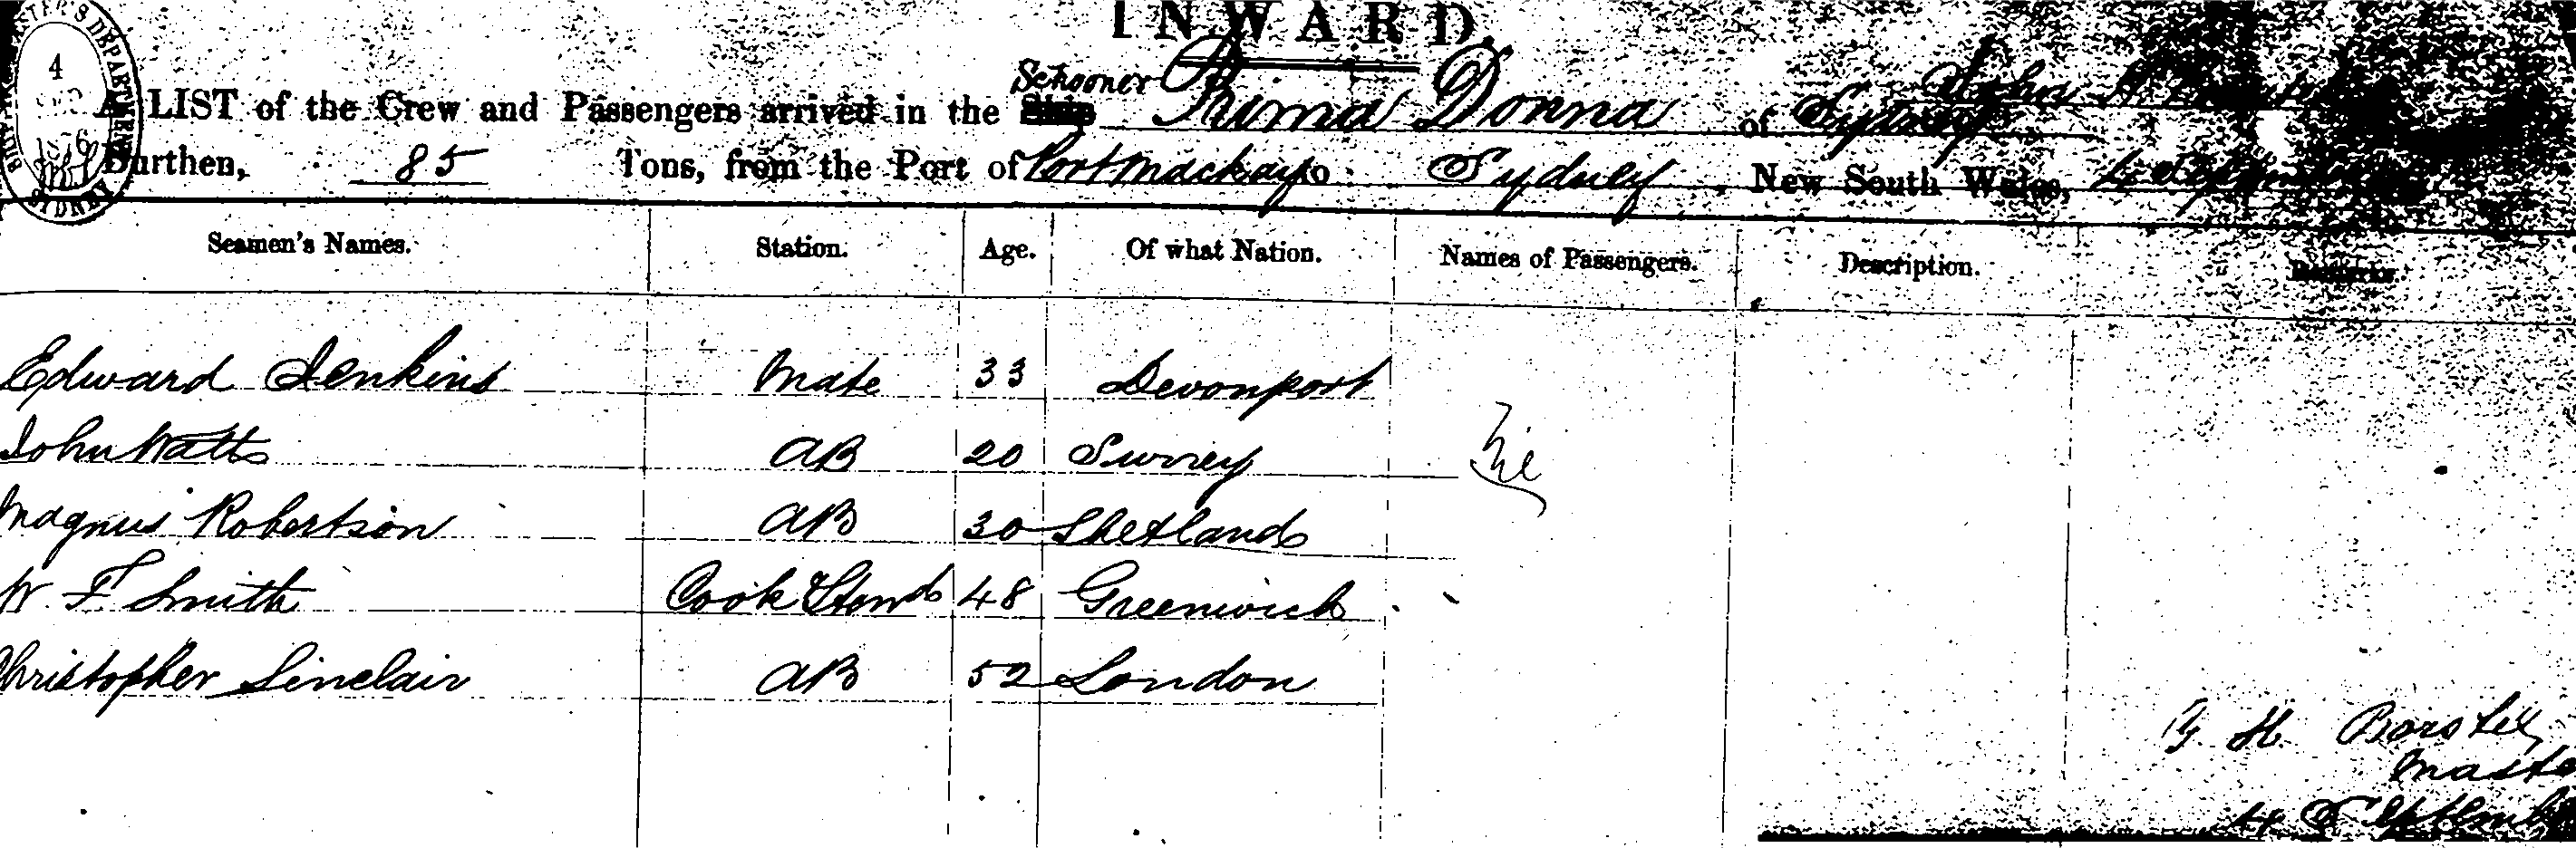 INWARD.
4
1876
SYDNEY
Schooner
A LIST of the Crew and Passengers arrived in the Ship Prima Donna of Sydney John
Burthen, 85 Tons, from the Port of Port Mackay to Sydney, New South Wales, 4 September
Seamen's Names. Station. Age. Of what Nation. Names of Passengers. Description. Remarks
Edward Jenkins Mate 33 Devonport
John Watts AB 20 Surrey
Magnus Robertson AB 30 Shetland
W. F Smith Cook & Stewd 48 Greenwich
Christopher Sinclair AB 52 London
H. Borstel
Maste
4 Septemb